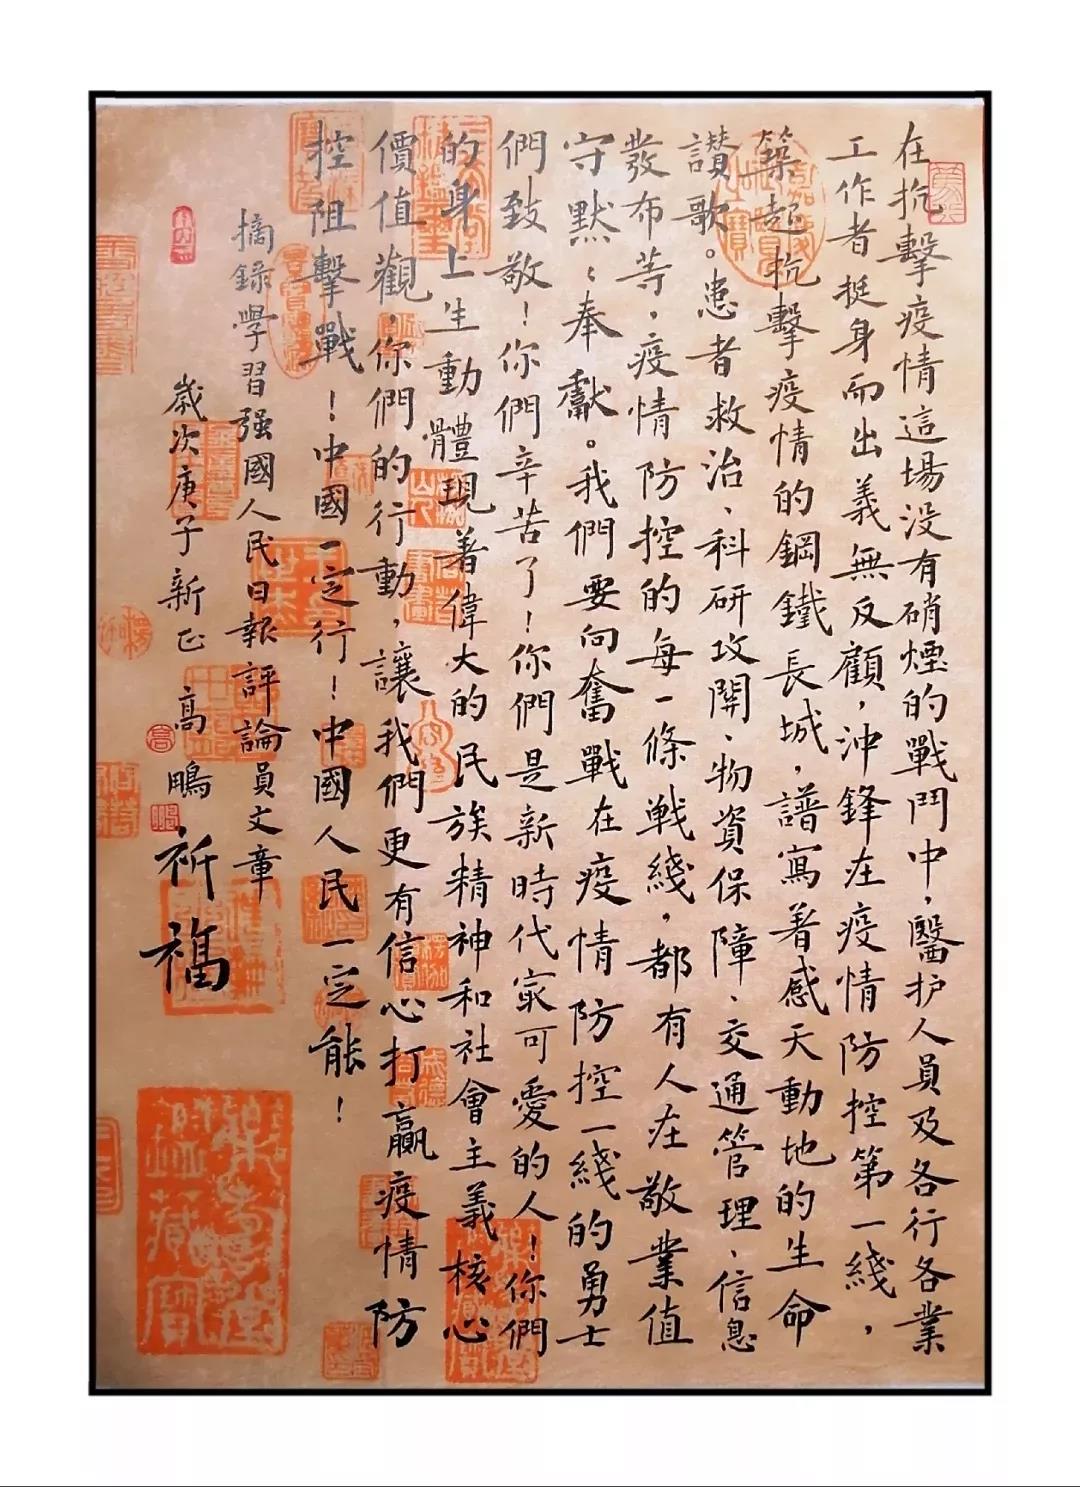 在抗擊疫情這場没有硝煙的戰鬥中，醫护人員及各行各業
工作者挺身而出義無反顧，沖鋒在疫情防控第一綫，
築起抗擊疫情的鋼鐵長城，譜寫著感天動地的生命
讃歌。患者救治、科研攻關、物資保障、交通管理、信息
發布等，疫情防控的每一條戰綫，都有人在敬業值
守默默奉獻。我們要向奮戰在疫情防控一綫的勇士
們致敬！你們辛苦了！你們是新時代最可愛的人！你們
的身上生動體現著偉大的民族精神和社會主義核心
價值觀，你們的行動，讓我們更有信心打贏疫情防
控阻擊戰！中國一定行！中國人民一定能！
摘錄學習强國人民日報評論員文章
歲次庚子新正 高鵬
祈福